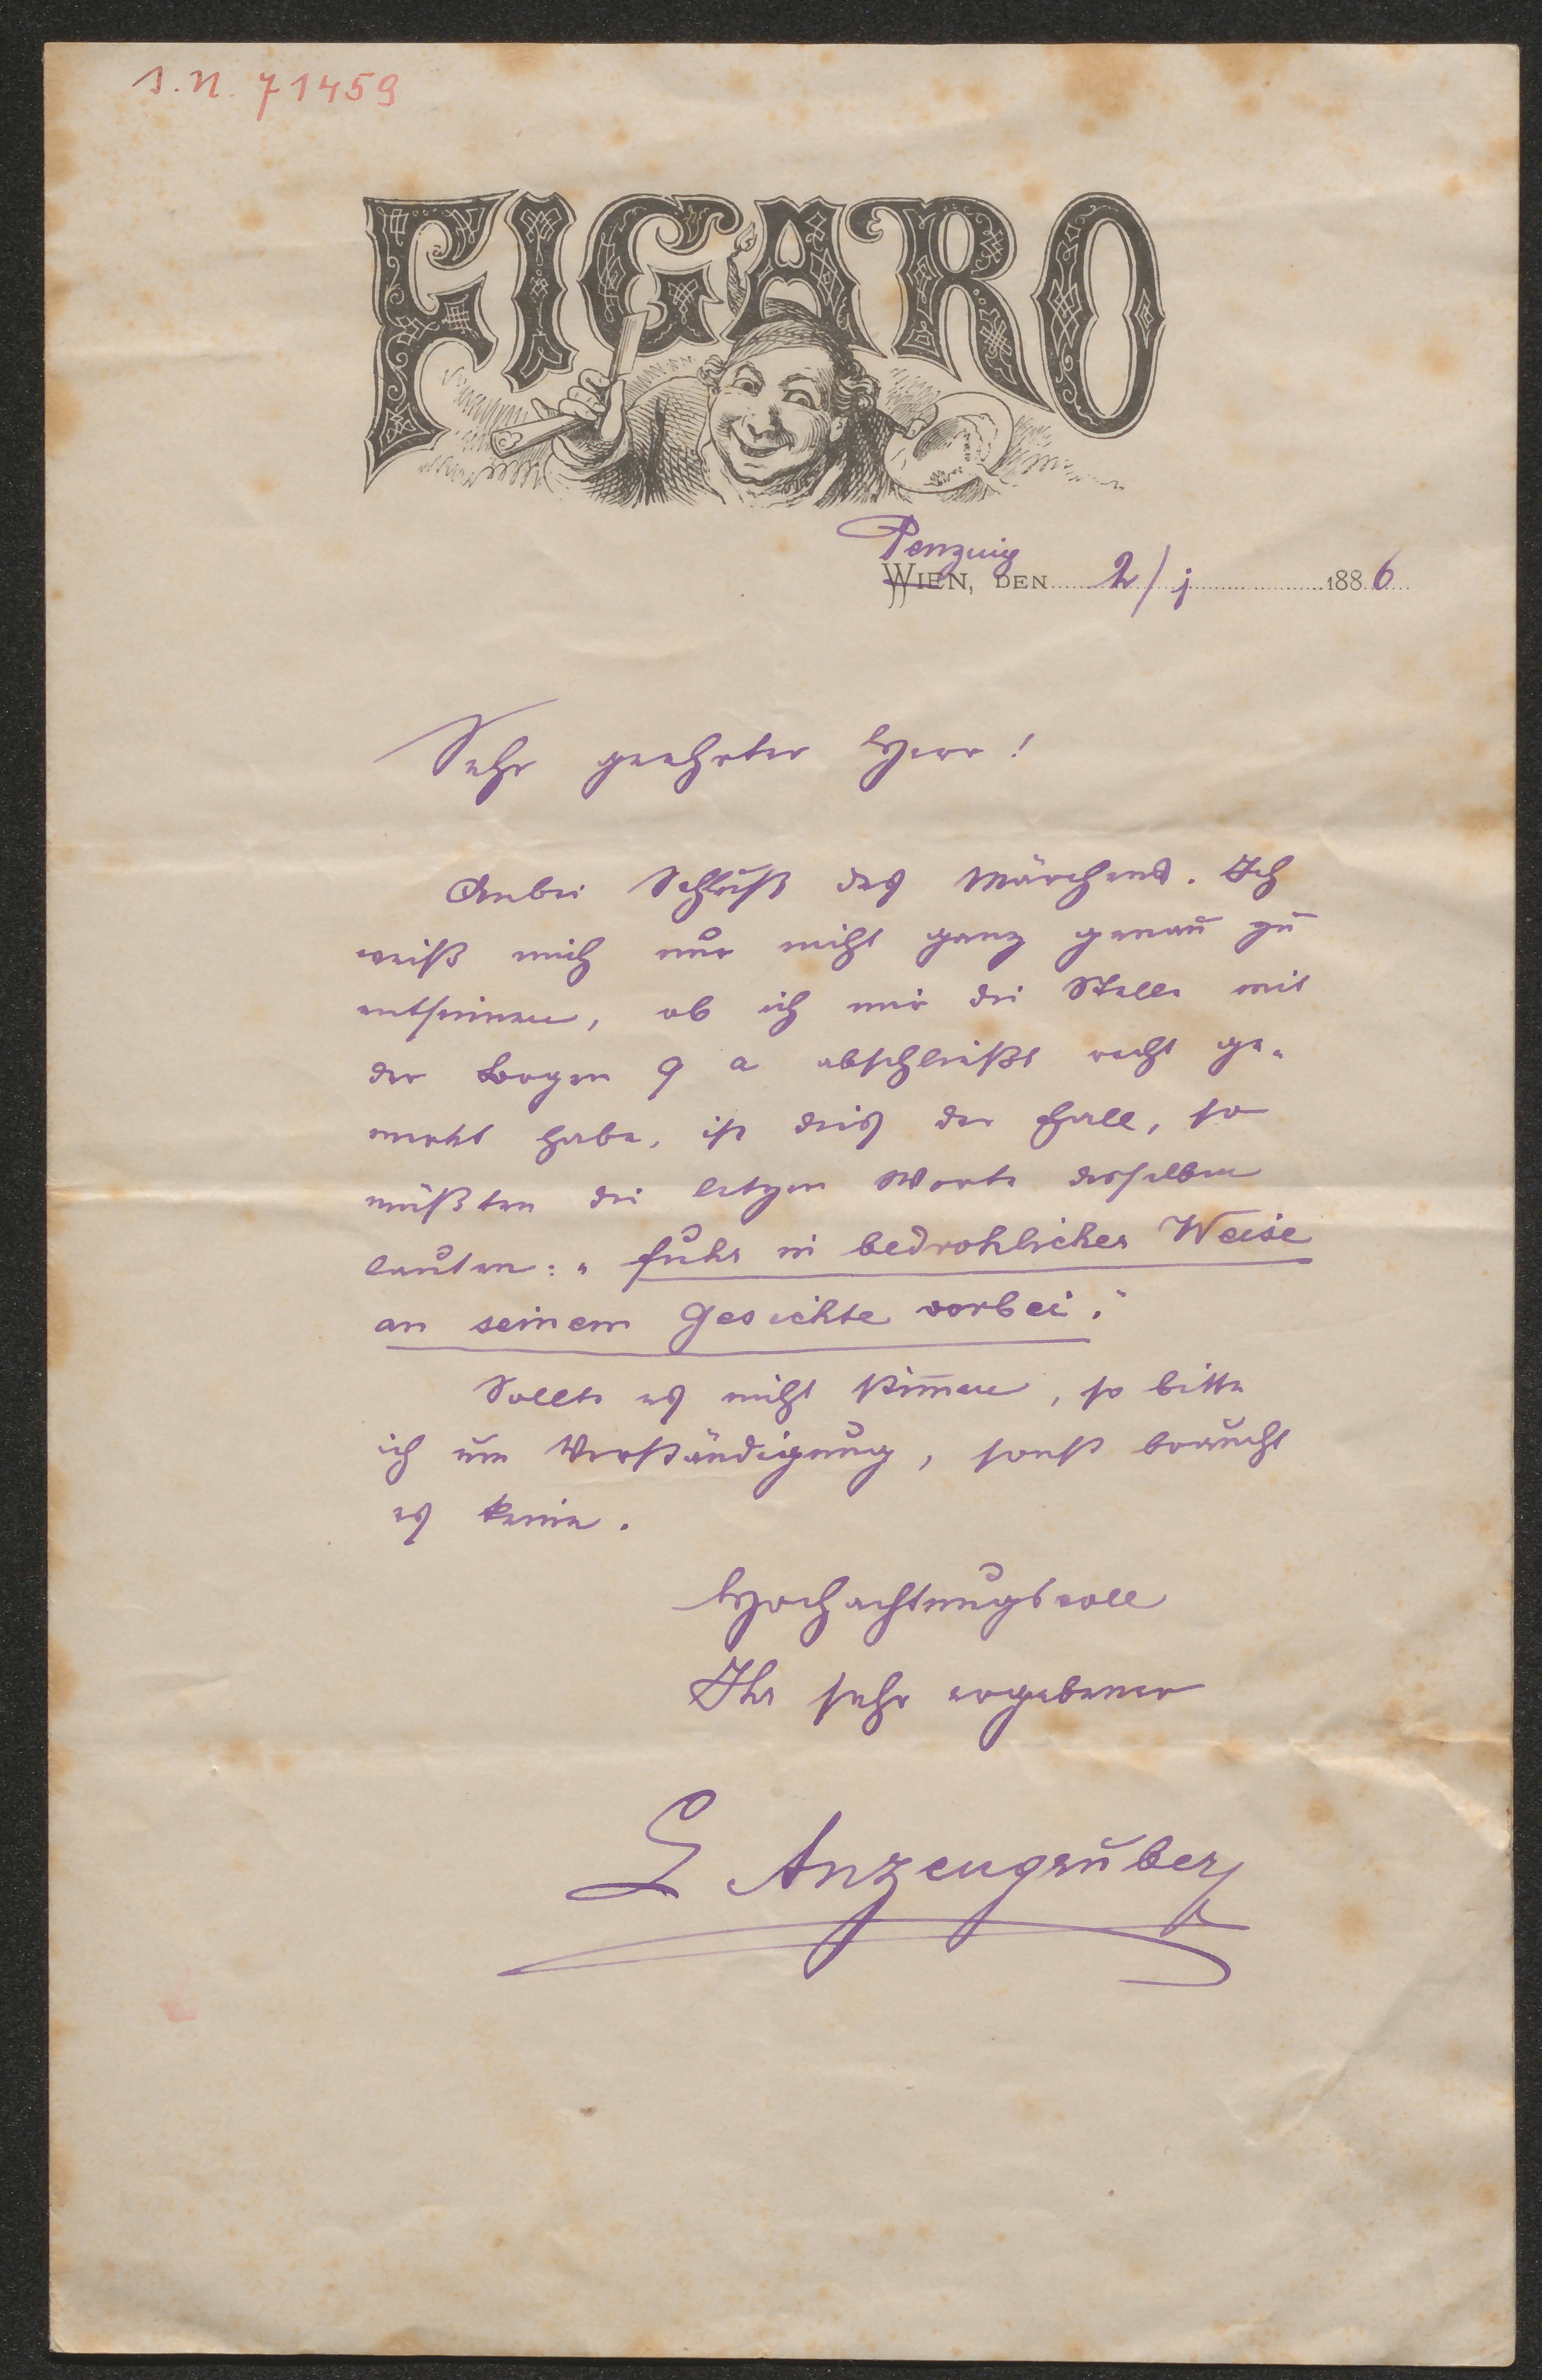 I.N. 71459
FIGARO
Penzing
WIEN, DEN 2/1 1886
Sehr geehrter Herr!
Anbei Schluß des Märchens. Ich
weiß mich nur nicht ganz genau zu
entsinnen, ob ich mir die Stelle mit
der Bogen 9 a abschließt recht ge-
merkt habe, ist dies der Fall, so
müßten die letzen Worte desselben
lauten: „fuhr in bedrohlicher Weise
an seinem Gesichte vorbei."
Sollte es nicht stim̄en, so bitte
ich um Verständigung, sonst braucht
es keine.
Hochachtungsvoll
Ihr sehr ergebener
L Anzengruber